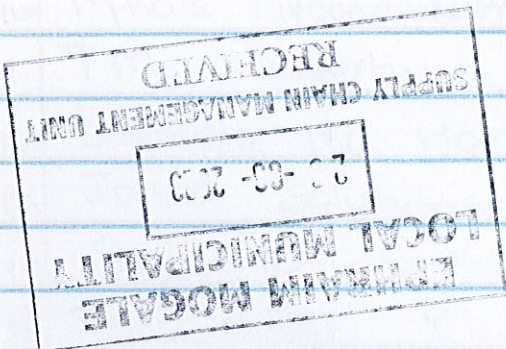 EPHRAIM MOGALE
LOCAL MUNICIPALITY
SUPPLY CHAIN MANAGEMENT UNIT
RECEIVED